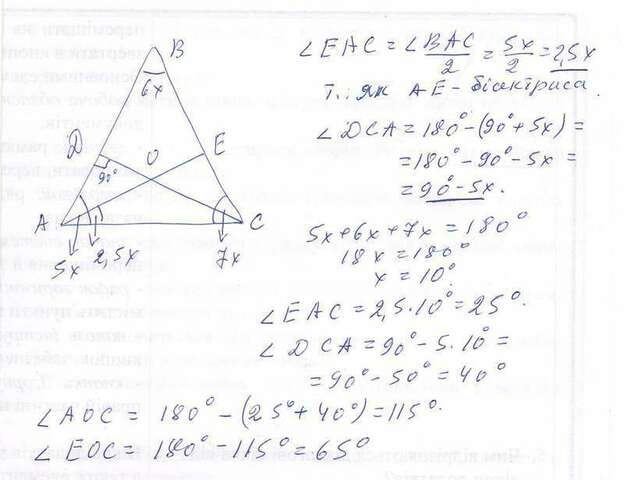 B
6x
D
O
E
90°
A
C
5x
2,5x
7x
∠EAC = ∠BAC/2 = 5x/2 = 2,5x
т. як AE - бісектриса.
∠DCA = 180° - (90° + 5x) =
= 180° - 90° - 5x =
= 90° - 5x.
5x + 6x + 7x = 180°
18x = 180°
x = 10°.
∠EAC = 2,5 · 10° = 25°.
∠DCA = 90° - 5 · 10° =
= 90° - 50° = 40°
∠AOC = 180° - (25° + 40°) = 115°.
∠EOC = 180° - 115° = 65°